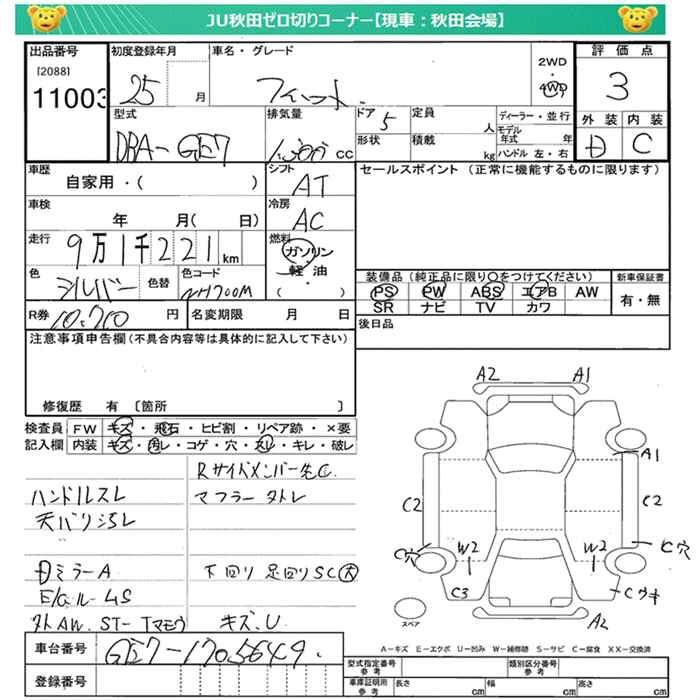 JU秋田ゼロ切りコーナー【現車：秋田会場】
出品番号 初度登録年月 車名・グレード 2WD 評価点
[2088] 25 月 フィット 4WD 3
11003
型式 排気量 ドア 5 定員 人 ディーラー・並行 外装 内装
DBA-GE7 1,300 cc 形状 積載 kg モデル年式 年 C
ハンドル 左・右
車歴 シフト セールスポイント（正常に機能するものに限ります）
自家用・（ ） AT
車検 冷房
年 月（ 日） AC
走行 燃料
9万1千221km ガソリン
軽油
（ ）
色 シルバー 色替 色コード NH700M
装備品（純正品に限り○をつけてください） 新車保証書
PS PW ABS エアB AW 有・無
SR ナビ TV カワ
R券 10,710 円 名変期限 月 日 後日品
注意事項申告欄（不具合内容等は具体的に記入して下さい）
修復歴 有 〔箇所 〕
検査員 FW キズ・飛石・ヒビ割・リペア跡・×要
記入欄 内装 キズ・汚レ・コゲ・穴・スレ・キレ・破レ
RサイドメンバーC
ハンドルスレ マフラー
天バリ汚レ
ミラーA 下回り 足回りSC大
キズ、U
A2 A1
A1
C2 C2
C穴 W2 W2 C穴
C3 Cウキ
スペア A2
A-キズ E-エクボ U-凹み W-補修跡 S-サビ C-腐食 XX-交換済
車台番号 GE7-1705649
登録番号
型式指定番号 参考 類別区分番号 参考
車庫証明用 参考 長さ cm 幅 cm 高さ cm